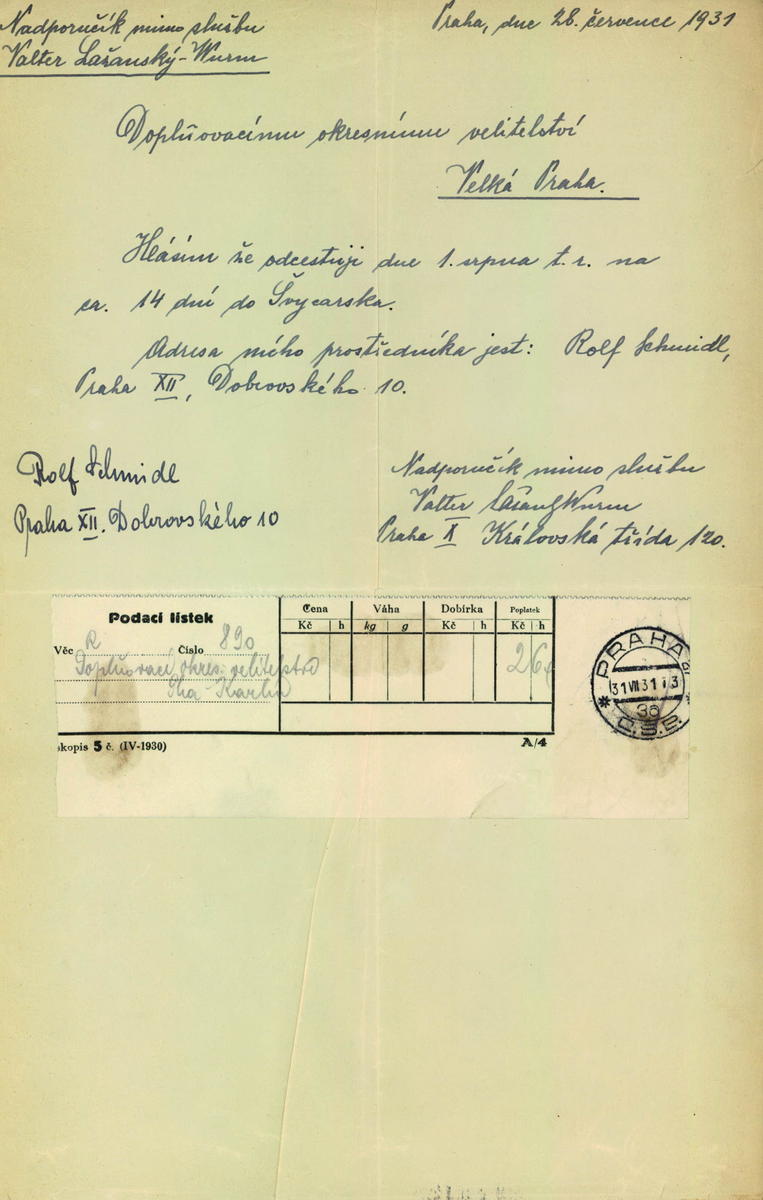 Nadporučík mimo službu
Valter Lažanský-Wurm
Praha, dne 28. července 1931
Doplňovacímu okresnímu velitelství
Velká Praha.
Hlásím že odcestuji dne 1. srpna t. r. na
ca. 14 dní do Švýcarska.
Adresa mého prostředníka jest: Rolf Schmidl,
Praha XII, Dobrovského 10.
Rolf Schmidl
Praha XII. Dobrovského 10
Nadporučík mimo službu
Valter Lažanský Wurm
Praha X Královská třída 120.
Podací lístek
Věc R Číslo 890
Doplňovací okres. velitelstvo
Pha - Karlín
Cena Váha Dobírka Poplatek
Kč h kg g Kč h Kč h
2 6
skopis 5 č. (IV-1930)
A/4
PRAHA
31 VII 31
Č.S.P.